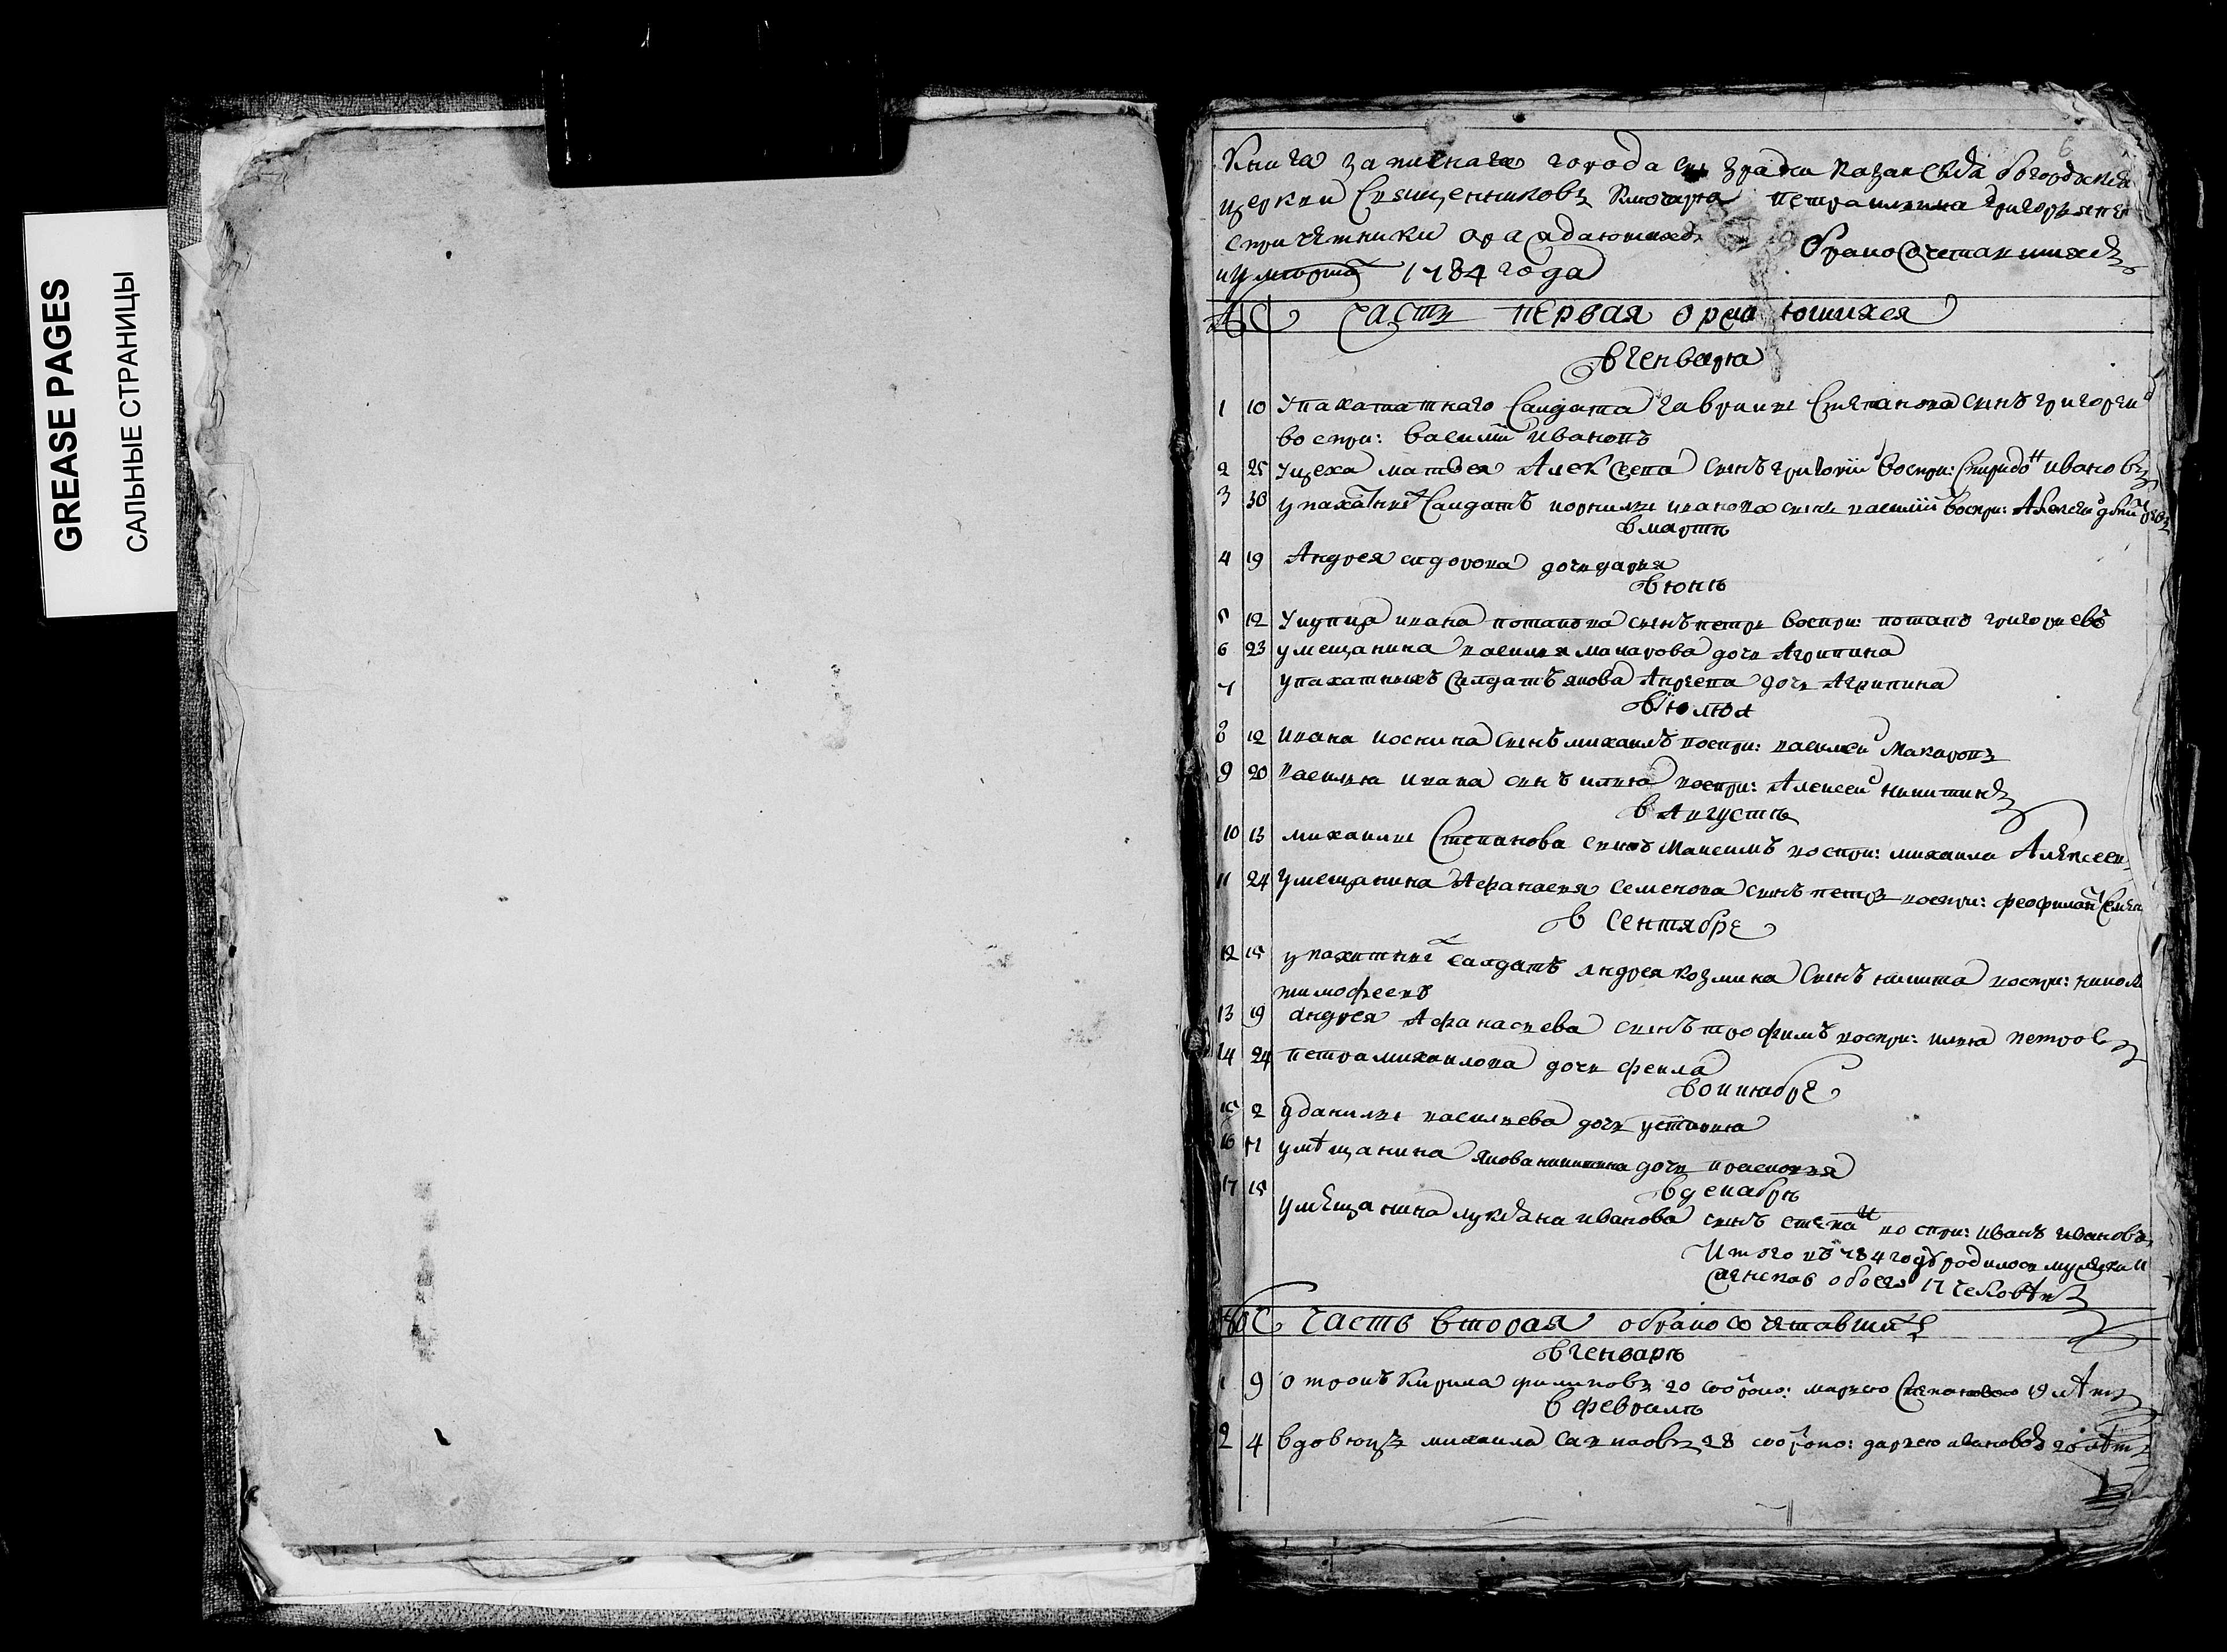 GREASE PAGES
САЛЬНЫЕ СТРАНИЦЫ
6
Книга записная города Сызрани Казанския Богородския
церкви Священников Ключаря Петра Григорья
с причетники о раждающихся Бракосочетавшихся
и умерших 1784 года
Часть первая о раждающихся
В Генваря
1 10 У пахатнаго Салдата Гаврилы Степанова сынъ григореи
воспри: василий ивановъ
2 25 Уцеха матвея Алексеева сынъ григории воспри: Спиридон ивановъ
3 30 у пахатных Салдатъ корнилы иванова сынъ василий воспри: Алексеи
в марте
4 19 Андрея сидорова дочь дарья
В юне
5 12 У купца ивана потапова сынъ петръ воспри: потапъ григорьевъ
6 23 у мещанина василья макарова дочь Агрипина
7 у пахатныхъ Салдатъ якова Андреева дочь Агрипина
В июля
8 12 ивана сынъ михаилъ воспри: василеи Макаровъ
9 20 василья ивана сынъ илья воспри: Алексеи никитинъ
в Августе
10 13 михаилы Степанова сынъ Максимъ воспри: михаила Алексеев
11 24 У мещанина Афанасья семенова сынъ петръ воспри: феофилан
в Сентябре
12 15 у пахатных салдатъ Андрея козмина Сынъ никита воспри: никол
тимофеевъ
13 19 Андрея Афанасьева сынъ трофимъ воспри: илья петровъ
14 24 петра михаилова дочь фекла
В октюбре
15 2 У данилы васильева дочь устинья
16 11 у мещанина якова никитина дочь прасковья
в декабре
17 15 у мещанина лукьяна иванова сынъ степан воспри: иванъ ивановъ
Итого въ 784 годъ родилось мужеска и
женска обоего 17 человекъ
Часть вторая о бракосочетавшихся
В генваре
1 9 отрокъ Кирила филиповъ 20 собрако: марьею Степановою 19 летъ
в феврале
2 4 вдовюцъ михаила 28 собрако: дарьею ивановой летъ